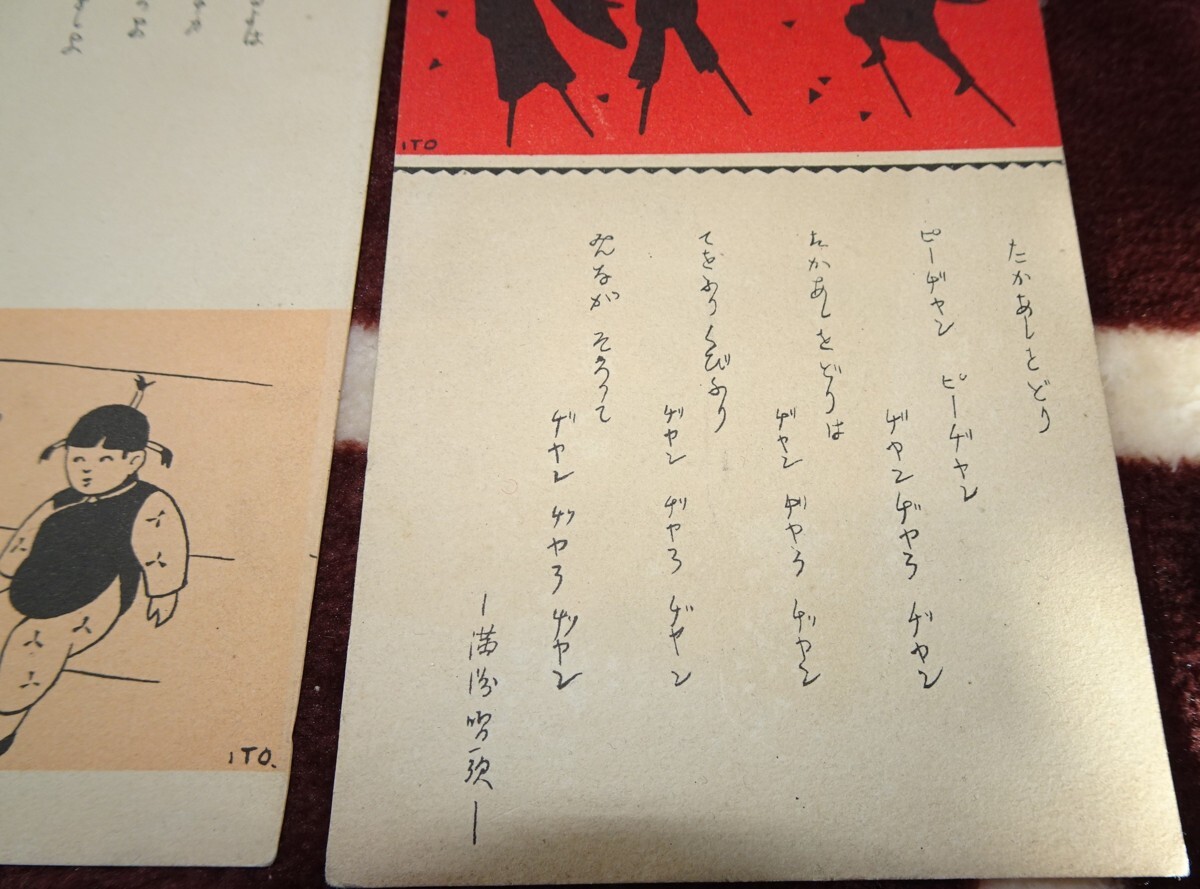 ITO
たかあしをどり
ピーヂヤン ピーヂヤン
ヂヤンヂヤラ ヂヤン
たかあしをどりは
ヂヤン ヂヤラ ヂヤン
てをふり くびふり
ヂヤン ヂヤラ ヂヤン
みんなが そろって
ヂヤン ヂヤラ ヂヤン
ITO.